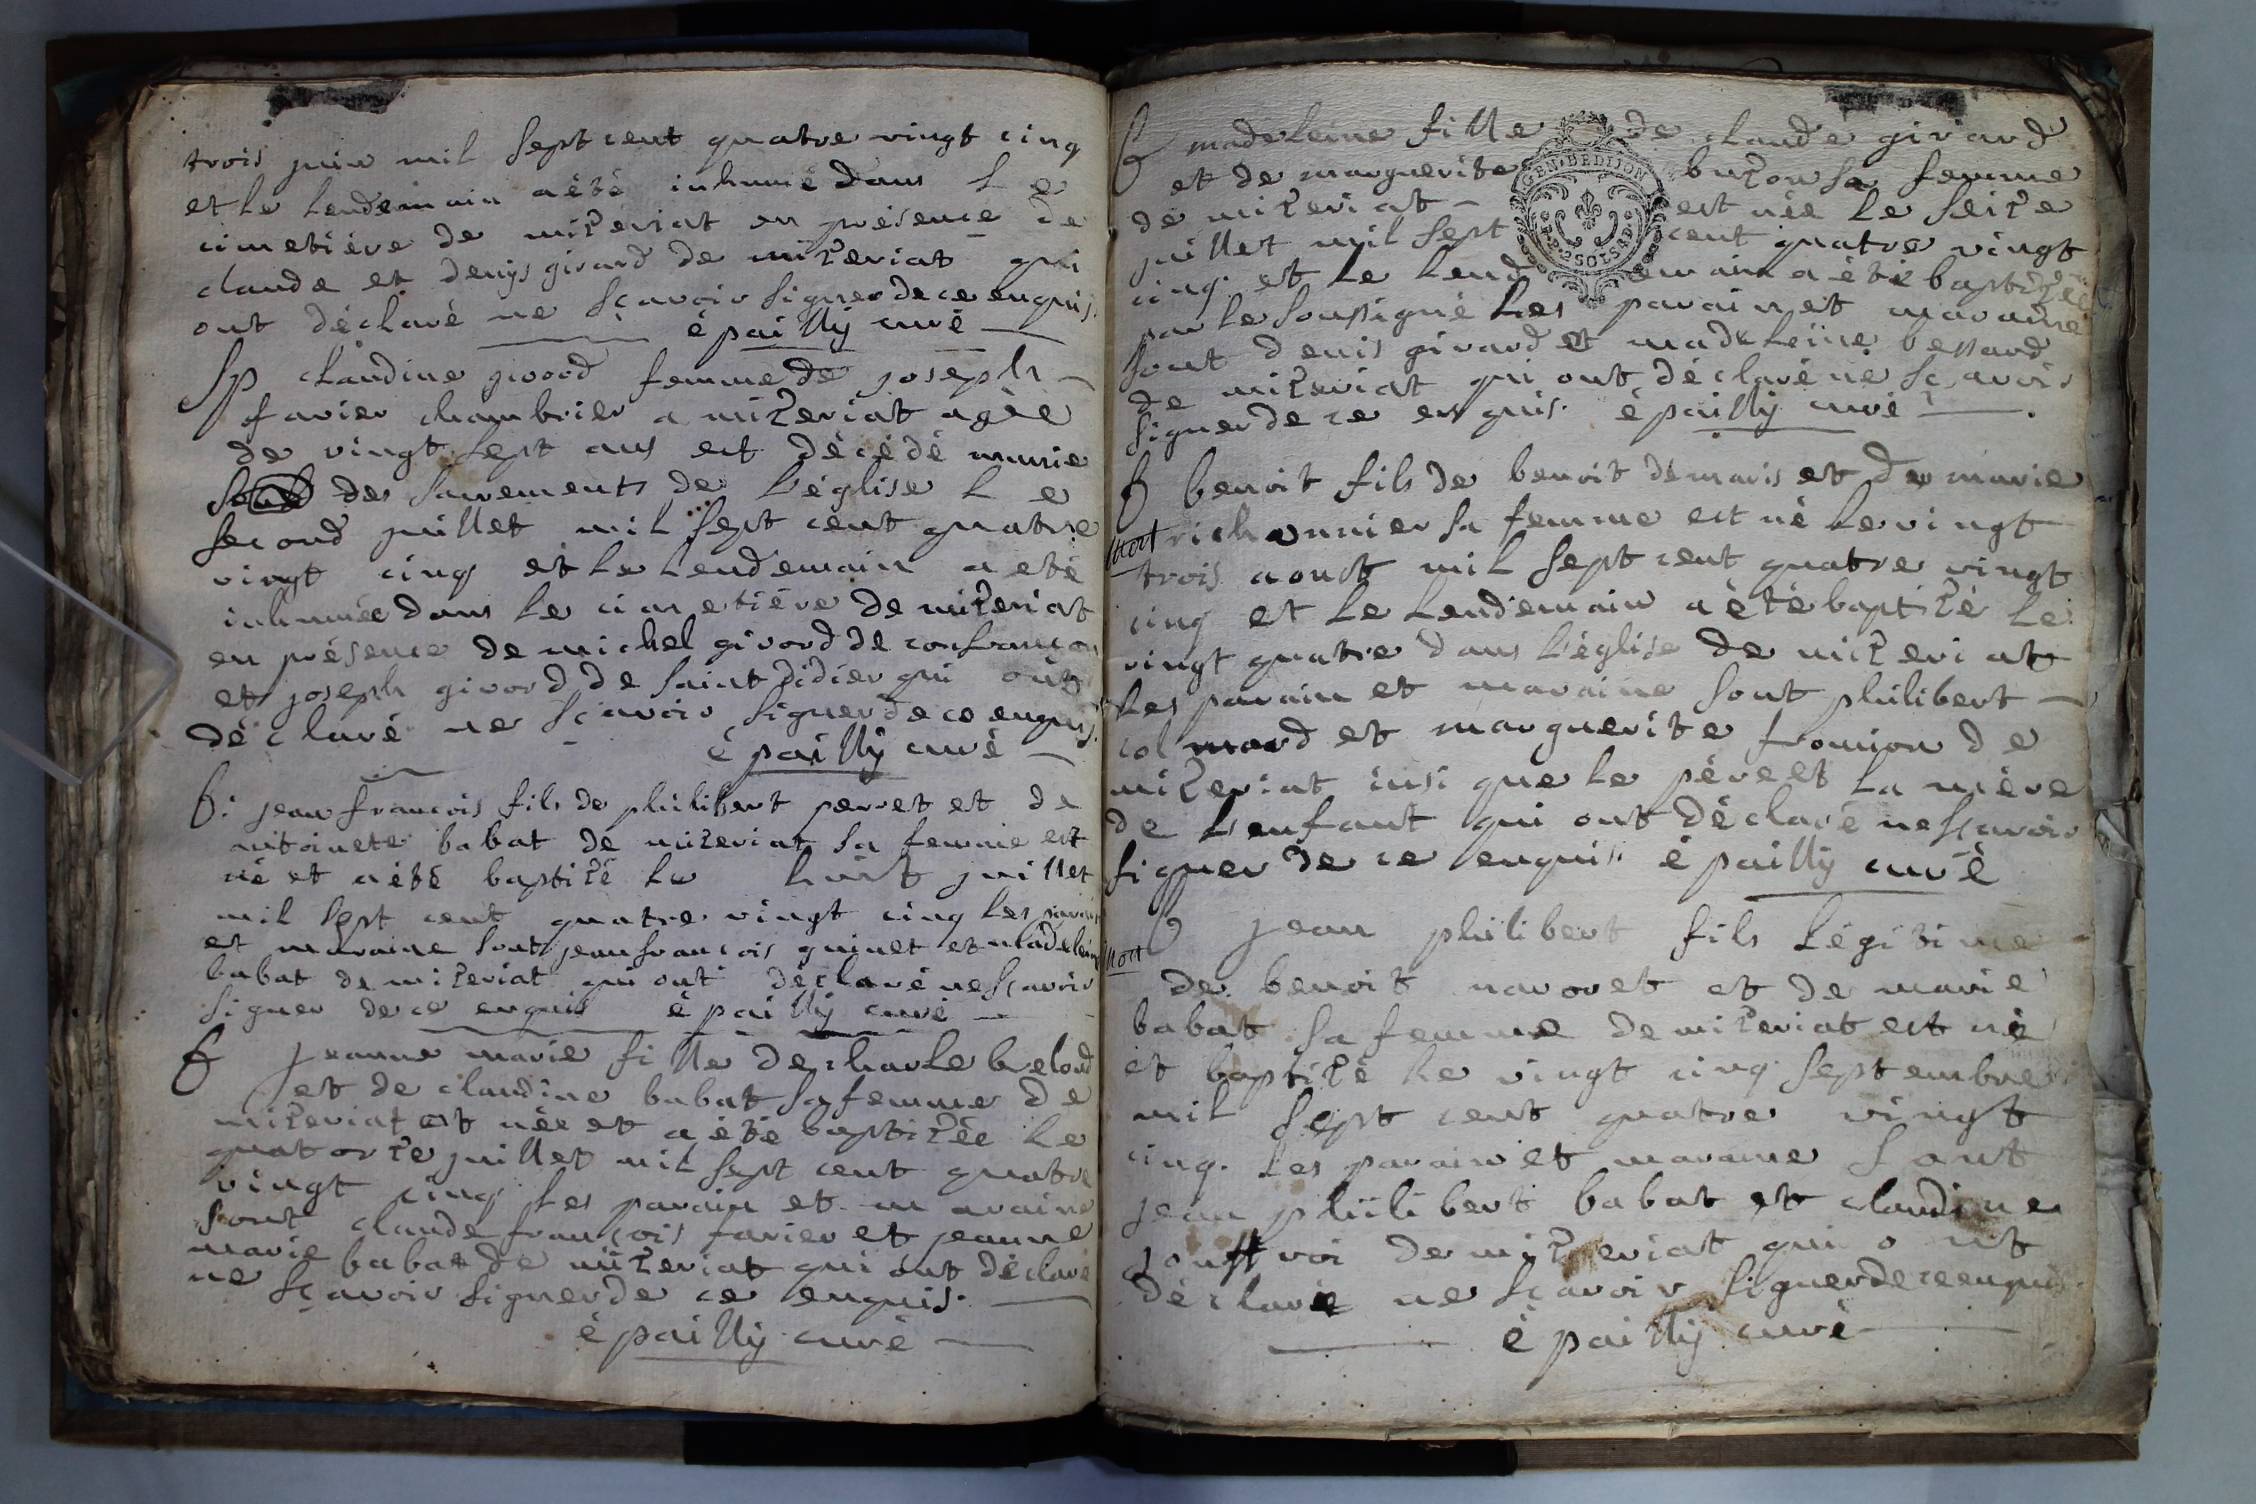 trois juin mil sept cent quatre vingt cinq
et le lendemain a été inhumé dans le
cimetiére de mizeriat en présence de
claude et denys girard de mizeriat qui
ont déclaré ne sçavoir signer de ce enquis.
épailly curé
Sp claudine givord femme de joseph
favier chambrier a mizeriat agée
de vingt sept ans est décédé munie
des sacrements de l'église le
second juillet mil sept cent quatre
vingt cinq et le lendemain a eté
inhumée dans le cimetiére de mizeriat
en présence de michel givord de confrançon
et joseph givord de saint didier qui ont
déclaré ne sçavoir signer de ce enquis.
épailly curé
B: jean françois fils de philibert perret et de
antoinete babat de mizeriat sa femme est
né et a été baptizé le huit juillet
mil sept cent quatre vingt cinq les parain
et maraine sont jean francois guinet et madeleine
babat de mizeriat qui ont déclaré ne sçavoir
signer de ce enquis épailly curé
B jeanne marie fille de charle brelond
et de claudine babat sa femme de
mizeriat est née et a été baptizée le
quatorze juillet mil sept cent quatre
vingt cinq les parain et maraine
sont claude françois favier et jeanne
marie babat de mizeriat qui ont déclaré
ne sçavoir signer de ce enquis.
épailly curé
B madeleine fille de claude girard
et de marguerite buzon sa femme
de mizeriat est née le seize
juillet mil sept cent quatre vingt
cinq et le lendemain a été baptizée
par le soussigné les parain et maraine
sont denis girard et madeleine bessard
de mizeriat qui ont déclaré ne sçavoir
signer de ce enquis. épailly curé
GEN. DE DIJON
SOLS
B benoit fils de benoit démaris et de marie
mort richonnier sa femme est né le vingt
trois aoust mil sept cent quatre vingt
cinq et le lendemain a été baptizé le
vingt quatre dans l'église de mizeriat
les parain et maraine sont philibert
colmard et marguerite fromion de
mizeriat insi que le pére et la mére
de l'enfant qui ont déclaré ne sçavoir
signer de ce enquis. épailly curé
B jean philibert fils légitime
mort
de benoit navoret et de marie
babat sa femme de mizeriat est né
et baptizé le vingt cinq septembre
mil sept cent quatre vingt
cinq. les parain et maraine sont
jean philibert babat et claudine
de mizeriat qui ont
déclaré ne sçavoir signer de ce enquis.
épailly curé